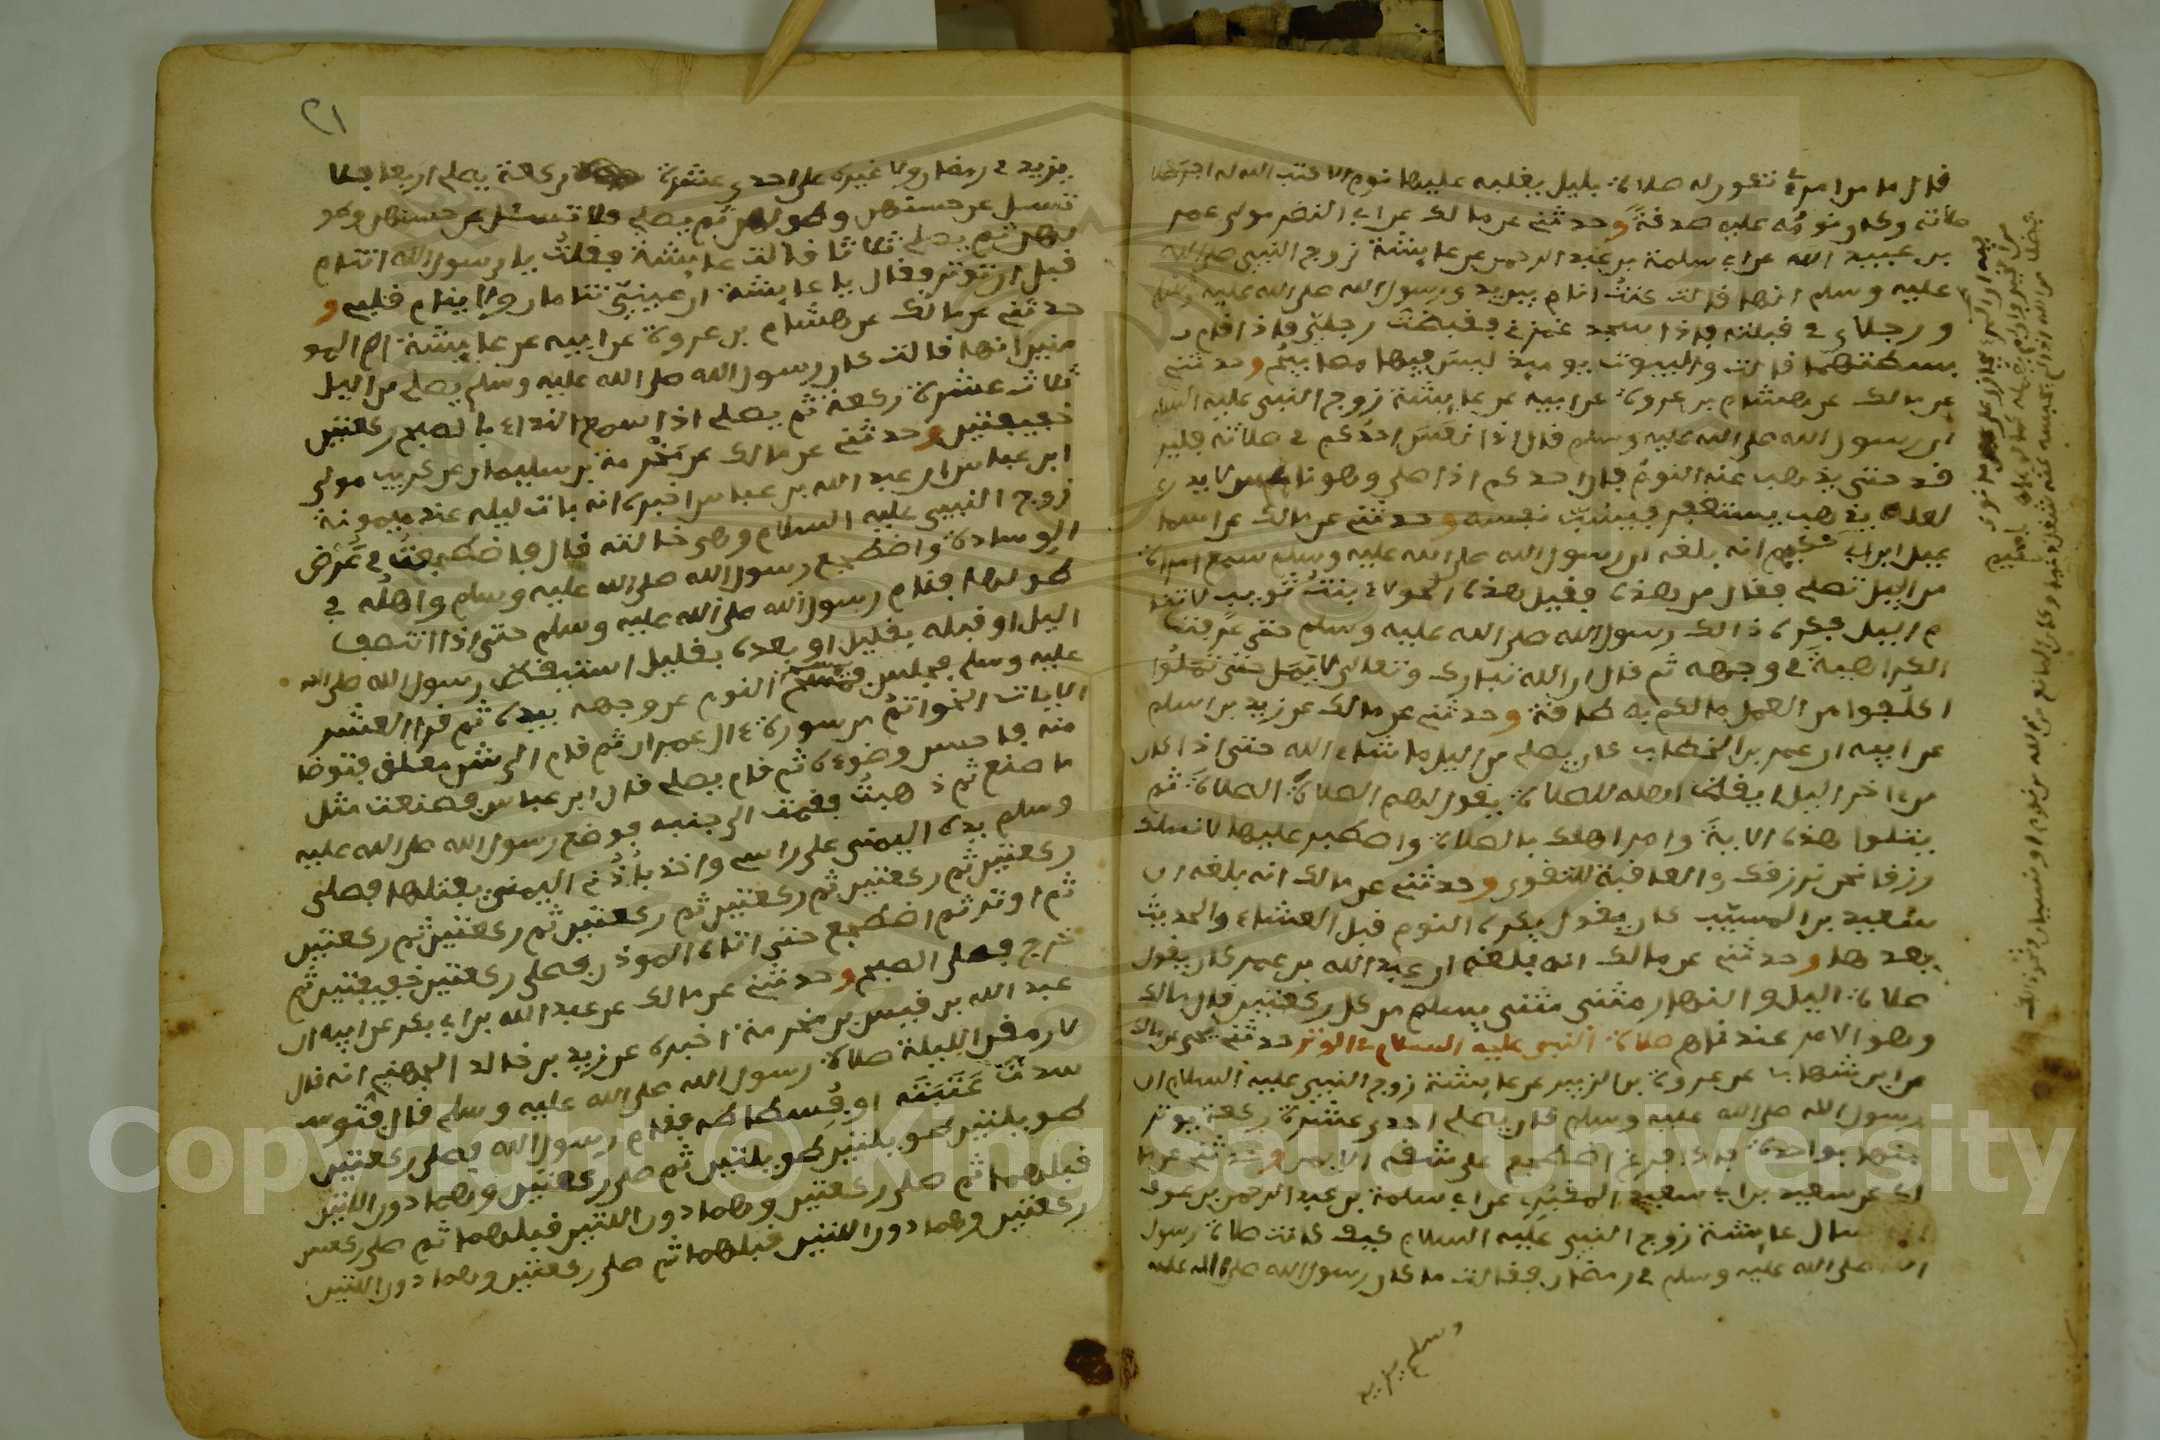 قال ما من امرئ تكون له صلاة بليل يغلبه عليها نوم الا كتب الله له اجر صلا
صلاته وكان نومه عليه صدقة وحدثني عن مالك عن ابي النضر مولى عمر
بن عبيد الله عن ابي سلمة بن عبد الرحمن عن عايشة زوج النبيي صلى الله
عليه وسلم انها قالت كنت انام بين يدي رسول الله صلى الله عليه وسلم
ورجلاي في قبلته فاذا سجد غمزني فقبضت رجلي فاذا قام
بسطتهما قالت والبيوت يوميذ ليس فيها مصابيح وحدثني
عن مالك عن هشام بن عروة عن ابيه عن عايشة زوج النبي عليه السلام
ان رسول الله صلى الله عليه وسلم قال اذا نعس احدكم في صلاته فلير
قد حتى يذهب عنه النوم فان احدكم اذا صلى وهو ناعس لا يدري
لعله يذهب يستغفر فيسب نفسه وحدثني عن مالك عن اسما
عيل ابن ابي حكيم انه بلغه ان رسول الله صلى الله عليه وسلم سمع امراة
من اليل تصلي فقال من هذه فقيل هذه الحولاء بنت تويب لا تنا
م اليل فكره ذالك رسول الله صلى الله عليه وسلم حتى عرفت
الكراهية في وجهه ثم قال ان الله تبارك وتعالى لا يمل حتى تملوا
اكلفوا من العمل ما لكم به طاقة وحدثني عن مالك عن زيد بن اسلم
عن ابيه ان عمر بن الخطاب كان يصلي من اليل ما شاء الله حتى اذا كان
من اخر اليل ايقظ اهله للصلاة يقول لهم الصلاة الصلاة ثم
يتلوا هذه الاية وامر اهلك بالصلاة واصطبر عليها لا نسلك
رزقا نحن نرزقك والعاقبة للتقوى وحدثني عن مالك انه بلغه ان
سعيد بن المسيب كان يقول يكره النوم قبل العشاء والحديث
بعدها وحدثني عن مالك انه بلغه ان عبد الله بن عمر كان يقول
صلاة اليل والنهار مثنى مثنى يسلم من كل ركعتين قال مالك
وهو الامر عندنا صلاة النبي عليه السلام في الوتر حدثني يحيى عن مالك
عن ابن شهاب عن عروة بن الزبير عن عايشة زوج النبيي عليه السلام ان
رسول الله صلى الله عليه وسلم كان يصلي احدى عشرة ركعة يوتر
منها بواحدة فاذا فرغ اضطجع على شقه الايمن وحدثني عن ما
لك عن سعيد بن ابي سعيد المقبري عن ابي سلمة بن عبد الرحمن بن عوف
انه سال عايشة زوج النبيي عليه السلام كيف كانت صلاة رسول
الله صلى الله عليه وسلم في رمضان فقالت ما كان رسول الله صلى الله عليه
وسلم يزيد
٢١
يزيد في رمضان ولا غيره على احدى عشرة ركعة يصلي اربعا فلا
تسل عن حسنهن وطولهن ثم يصلي فلا تسل عن حسنهن وطو
لهن ثم يصلي ثلاثا قالت عايشة فقلت يا رسول الله اتنام
قبل ان توتر فقال يا عايشة ان عيني تنامان ولا ينام قلبي و
حدثني عن مالك عن هشام بن عروة عن ابيه عن عايشة ام المو
منين انها قالت كان رسول الله صلى الله عليه وسلم يصلي من اليل
ثلاث عشرة ركعة ثم يصلي اذا سمع النداء بالصبح ركعتين
خفيفتين وحدثني عن مالك عن مخرمة بن سليمان عن كريب مولى
ابن عباس ان عبد الله بن عباس اخبره انه بات ليله عند ميمونة
زوج النبيي عليه السلام وهي خالته قال فاضطجعت في عرض
الوسادة واضطجع رسول الله صلى الله عليه وسلم واهله في
طولها فنام رسول الله صلى الله عليه وسلم حتى اذا انتصف
اليل او قبله بقليل او بعده بقليل استيقظ رسول الله صلى الله
عليه وسلم فجلس فمسح النوم عن وجهه بيده ثم قرا العشر
الايات الخواتم من سورة ءال عمران ثم قام الى شن معلق فتوضا
منه فاحسن وضوءه ثم قام يصلي قال ابن عباس فصنعت مثل
ما صنع ثم ذهبت فقمت الى جنبه فوضع رسول الله صلى الله عليه
وسلم يده اليمنى على راسي واخذ باذني اليمنى يفتلها فصلى
ركعتين ثم ركعتين ثم ركعتين ثم ركعتين ثم ركعتين ثم ركعتين
ثم اوتر ثم اضطجع حتى اتاه الموذن فصلى ركعتين خفيفتين ثم
خرج فصلى الصبح وحدثني عن مالك عن عبد الله بن ابي بكر عن ابيه ان
عبد الله بن قيس بن مخرمة اخبره عن زيد بن خالد الجهني انه قال
لارمقن الليلة صلاة رسول الله صلى الله عليه وسلم قال فتوسد
ت عتبته او فسطاطه فقام رسول الله فصلى ركعتين
طويلتين طويلتين طويلتين ثم صلى ركعتين وهما دون اللتين
قبلهما ثم صلى ركعتين وهما دون اللتين قبلهما ثم صلى ركعتين
ركعتين وهما دون اللتين قبلهما ثم صلى ركعتين وهما دون اللتين
Copyright © King Saud University